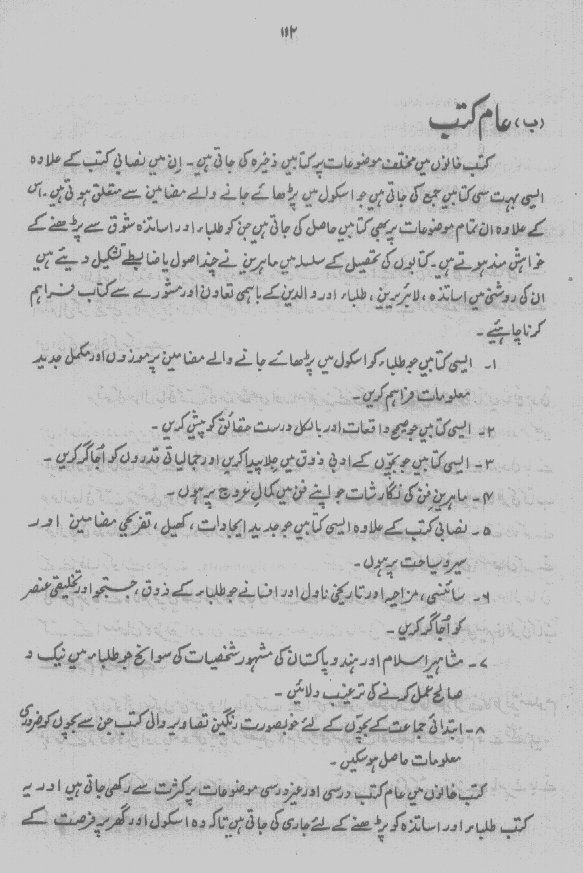 ۱۱۲
(ب) عام کتب
کتب خانوں میں مختلف موضوعات پر کتابیں ذخیرہ کی جاتی ہیں۔ اِن میں نصابی کتب کے علاوہ
ایسی بہت سی کتابیں جمع کی جاتی ہیں جو اسکول میں پڑھائے جانے والے مضامین سے متعلق ہوتی ہیں۔ اس
کے علاوہ ان تمام موضوعات پر بھی کتابیں حاصل کی جاتی ہیں جن کو طلباء اور اساتذہ شوق سے پڑھنے کے
خواہش مند ہوتے ہیں۔ کتابوں کی تحصیل کے سلسلہ میں ماہرین نے چند اصول یا ضابطے تشکیل دیئے ہیں
ان کی روشنی میں اساتذہ، لائبریرین، طلباء اور والدین کے باہمی تعاون اور مشورے سے کتاب فراہم
کرنا چاہیئے۔
۱۔ ایسی کتابیں جو طلباء کو اسکول میں پڑھائے جانے والے مضامین پر موزوں اور مکمل جدید
معلومات فراہم کریں۔
۲۔ ایسی کتابیں جو صحیح واقعات اور بالکل درست حقائق کو پیش کریں۔
۳۔ ایسی کتابیں جو بچّوں کے ادبی ذوق میں جلا پیدا کریں اور جمالیاتی قدروں کو اُجاگر کریں۔
۴۔ ماہرینِ فن کی نگارشات جو اپنے فن میں کمالِ عروج پر ہوں۔
۵۔ نصابی کتب کے علاوہ ایسی کتابیں جو جدید ایجادات، کھیل، تفریحی مضامین اور
سیر و سیاحت پر ہوں۔
۶۔ سائنسی، مزاحیہ اور تاریخی ناول اور افسانے جو طلباء کے ذوق، جستجو اور تخلیقی عنصر
کو اُجاگر کریں۔
۷۔ مشاہیر اسلام اور ہند و پاکستان کی مشہور شخصیات کی سوانح جو طلباء میں نیک و
صالح عمل کرنے کی ترغیب دلائیں۔
۸۔ ابتدائی جماعت کے بچّوں کے لئے خوبصورت رنگین تصاویر والی کتب جن سے بچوں کو ضروری
معلومات حاصل ہو سکیں۔
کتب خانوں میں عام کتب درسی اور غیر درسی موضوعات پر کثرت سے رکھی جاتی ہیں اور یہ
کتب طلباء اور اساتذہ کو پڑھنے کے لئے جاری کی جاتی ہیں تاکہ وہ اسکول اور گھر پر فرصت کے